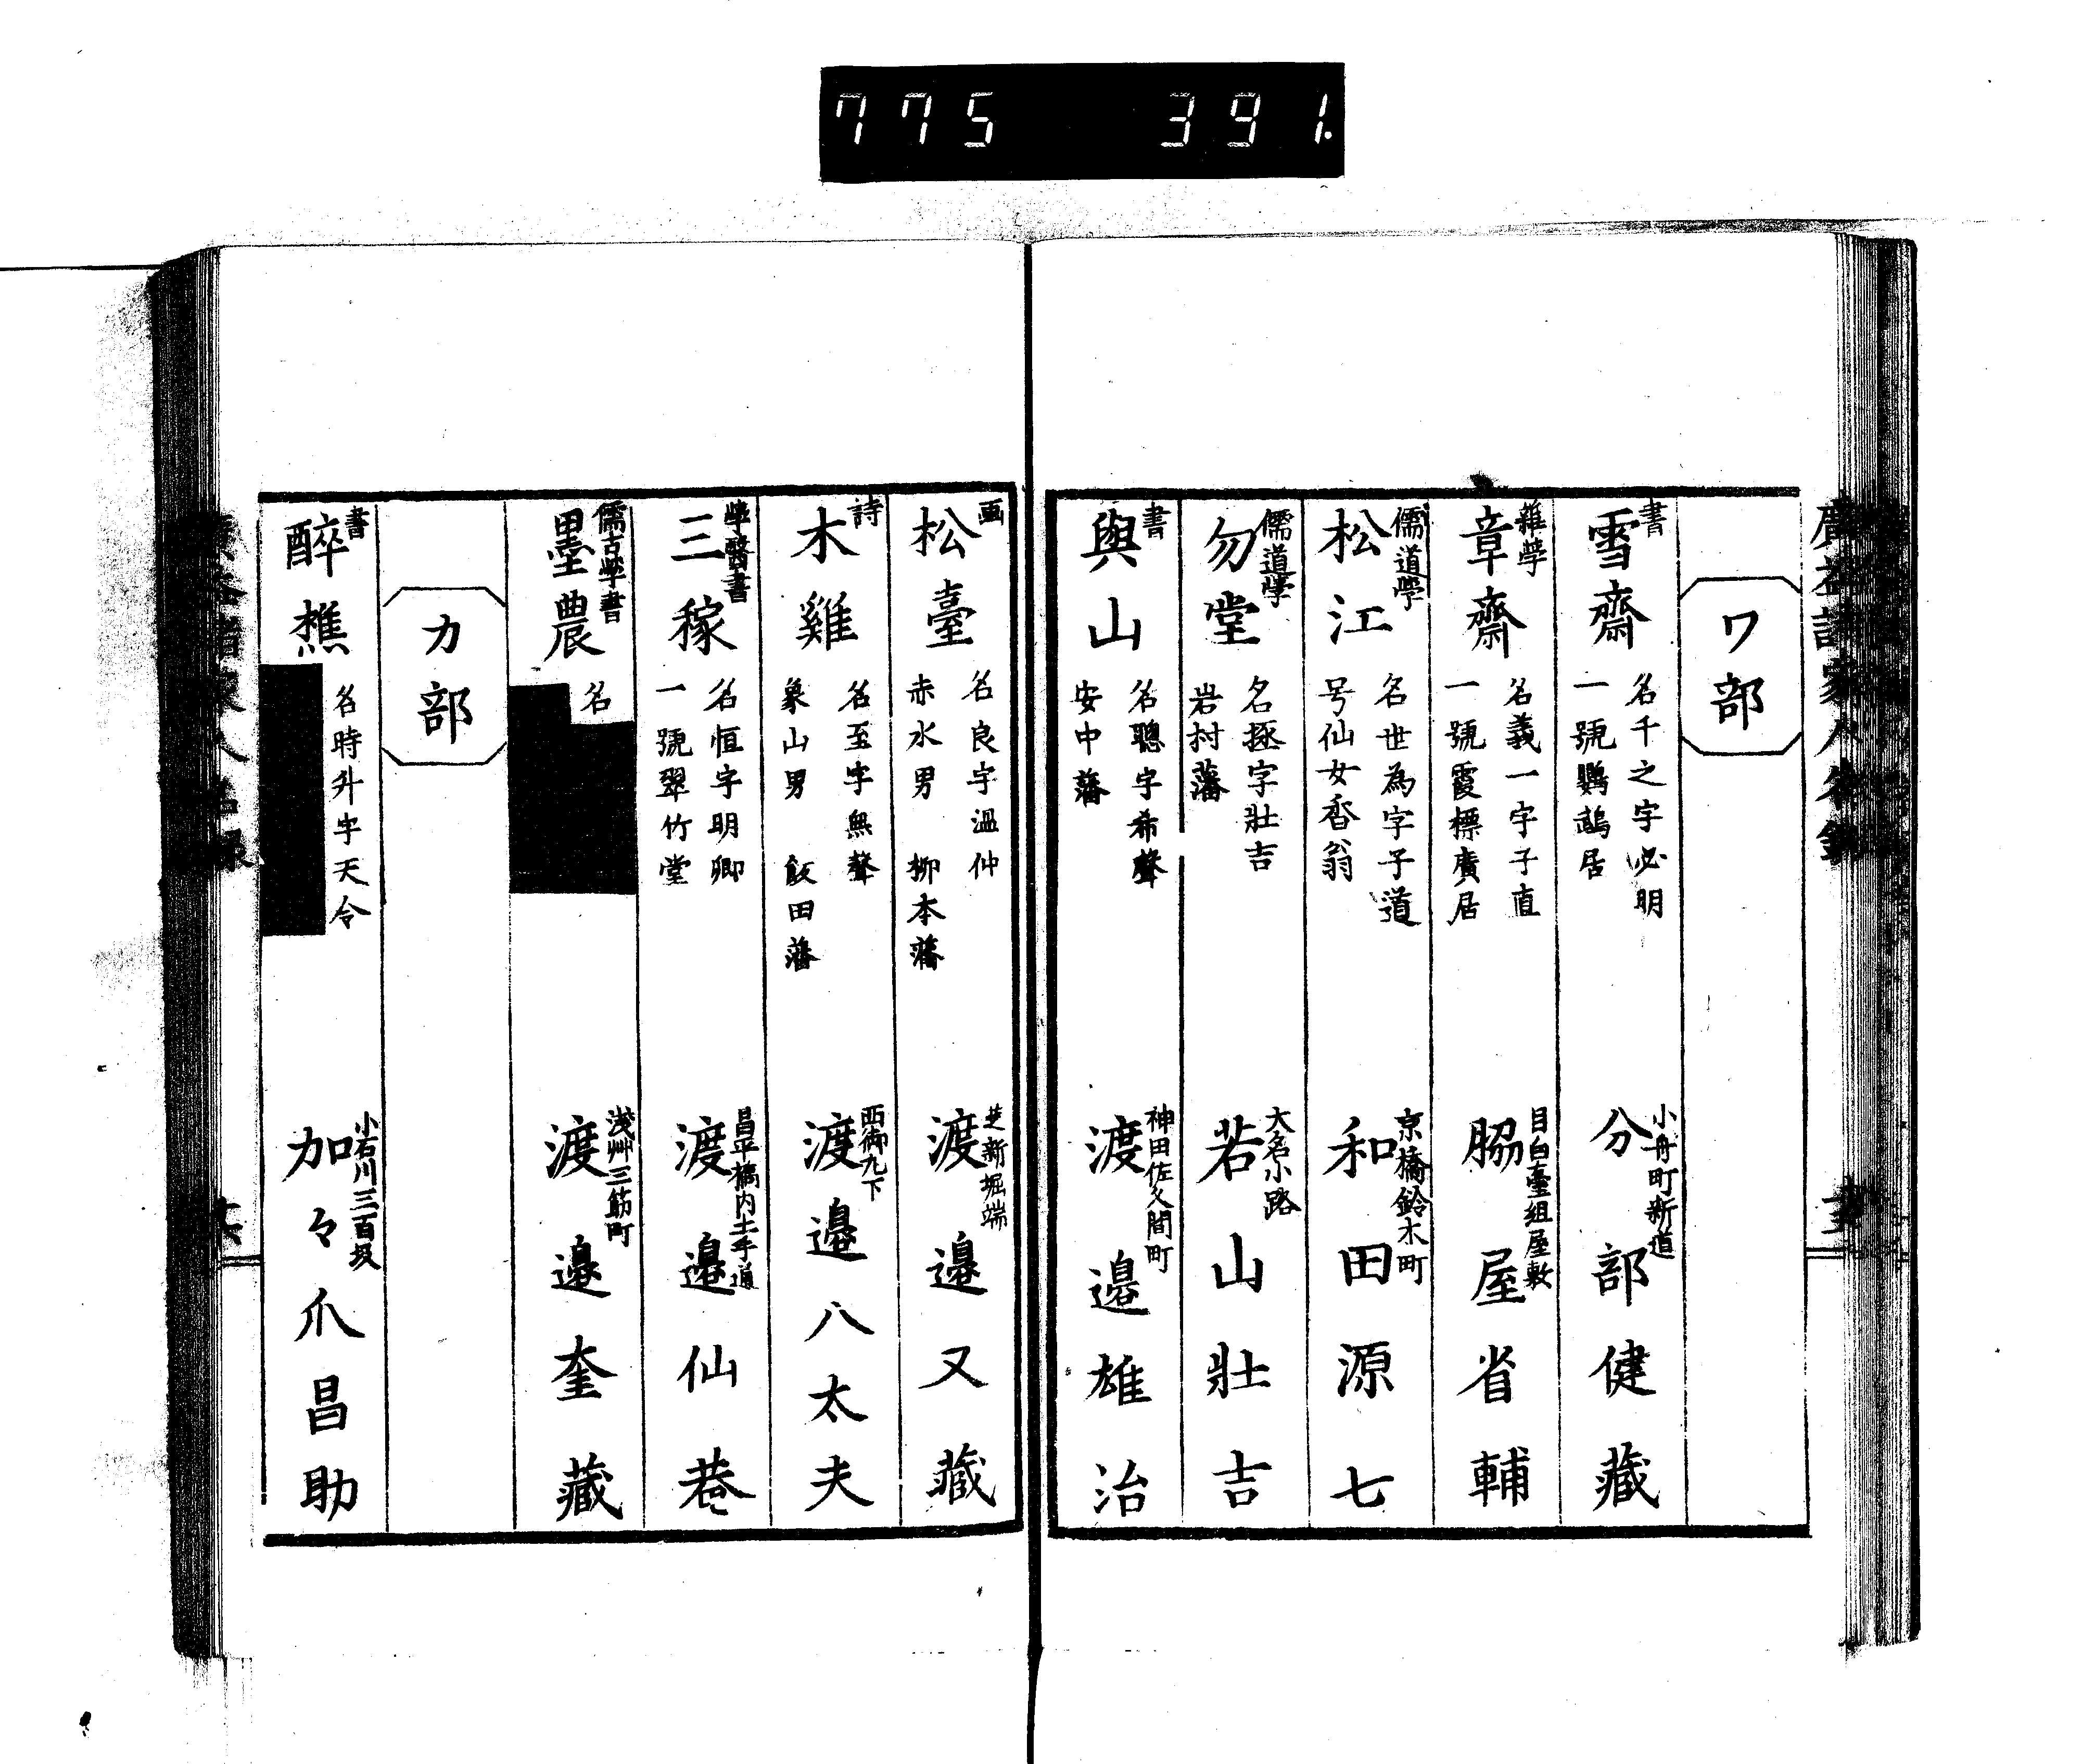 775 391.
ワ部
書
雪齋
名千之字必明
一號鸚鵡居
小舟町新道
分部健藏
雜學
章齋
名義一字子直
一號霞標廣居
目白臺組屋敷
脇屋省輔
儒道學
松江
名世為字子道
号仙女香翁
京橋鈴木町
和田源七
儒道學
勿堂
名拯字壯吉
岩村藩
大名小路
若山壯吉
書
與山
名聰字希聲
安中藩
神田佐久間町
渡邉雄治
画
松臺
名良字溫仲
赤水男 柳本藩
芝新堀端
渡邉又藏
詩
木雞
名至字無聲
象山男 飯田藩
西御丸下
渡邉八太夫
學醫書
三稼
名恒字明卿
一號翠竹堂
昌平橋内土手通
渡邉仙菴
儒古學書
墨農
名
淺艸三筋町
渡邉奎藏
カ部
書
醉樵
名時升字天令
小石川三百坂
加々爪昌助